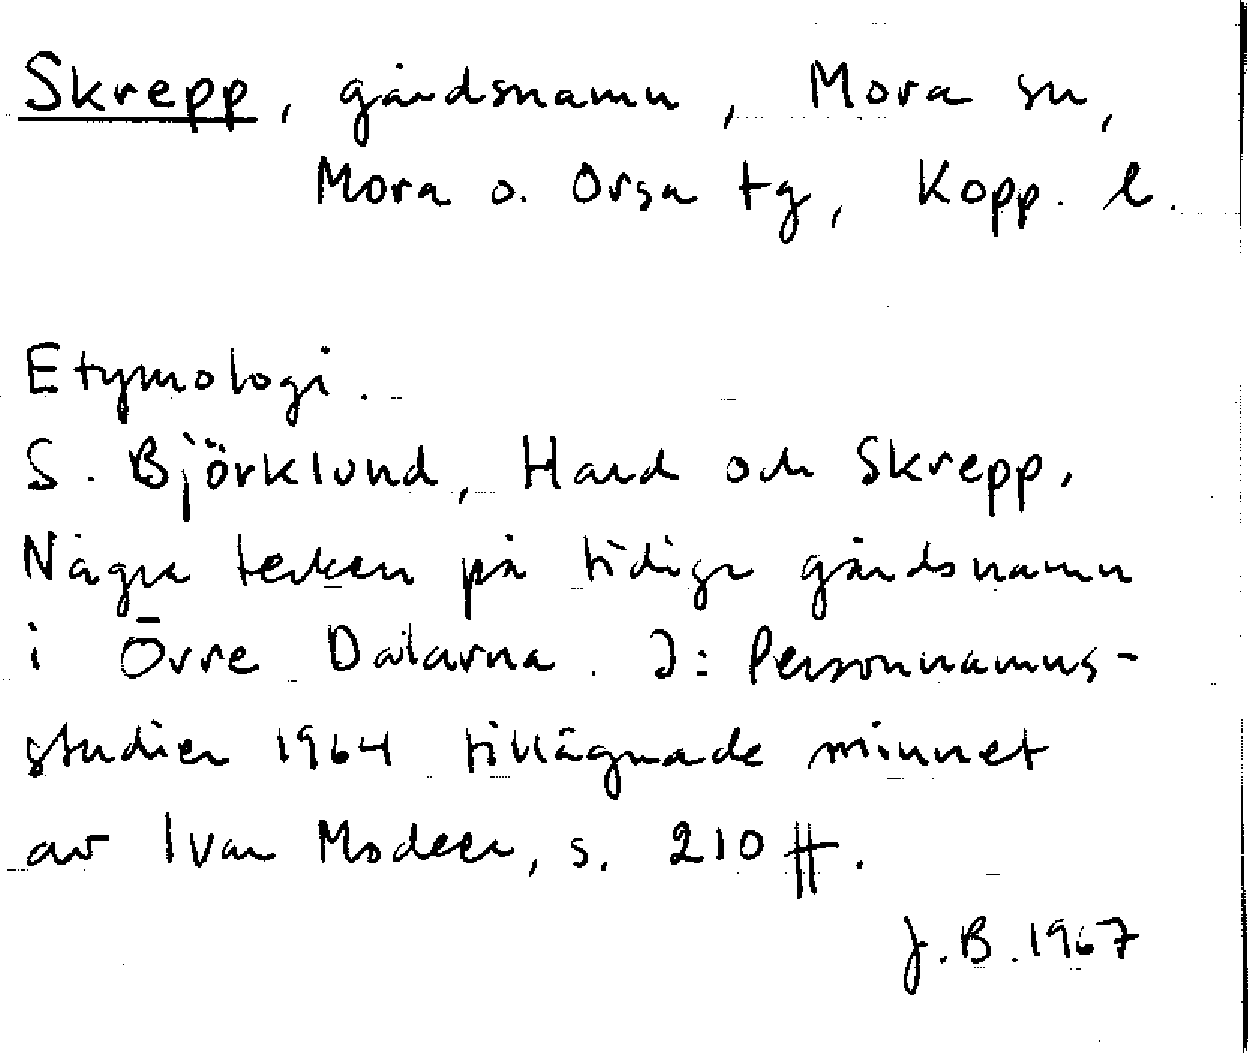 Skrepp, gårdsnamn, Mora sn,
Mora o. Orsa tg, Kopp. l.
Etymologi.
S. Björklund, Hard och Skrepp,
Några tecken på tidiga gårdsnamn
i Övre Dalarna. I: Personnamns-
studier 1964 tillägnade minnet
av Ivar Modéer, s. 210 ff.
J. B. 1967